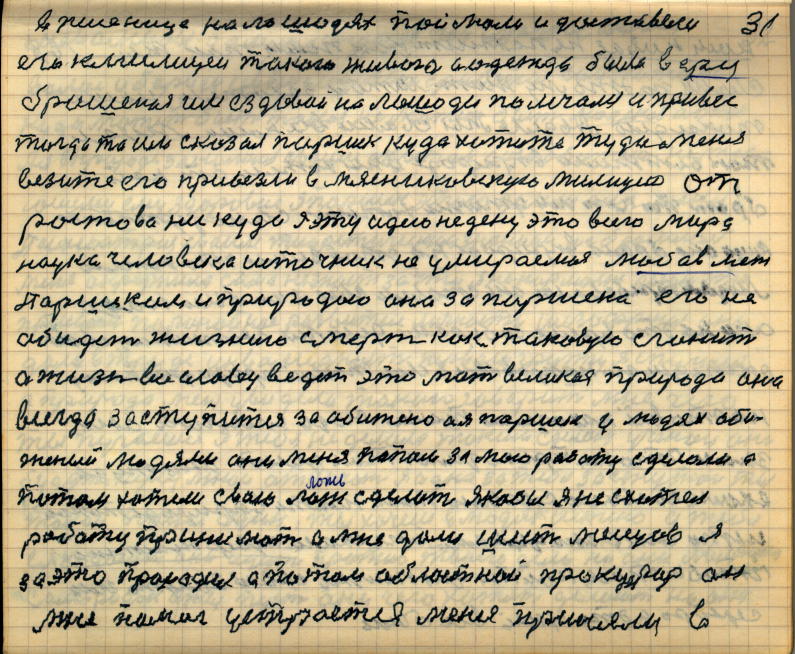 31
в пшенице на лошодях поймали и доставели
его кмилицеи такого живого аодежда была веру
брошеная им ездовой на лошоди помчалы и привес
тогда то им сказал паршек куда хотите туда меня
везите его привезли в мясниковскую милицию от
ростова никуда я эту идею недену это всего мира
наука человека источник не умираемая любов мет
паршиком и природою она за паршека его не
обидет жизнию смерт как таковую сгонит
а жизн во славу ведет это мат великая природа она
всегда заступится за обижено ая паршек у людях оби-
жений людями они меня попом за мою работу сделали а
ложь
потом хотели свою лож сделат якобы я не схотел
работу принимат а мне дали шест месецов я
за это праходил а потом областной прокурар он
мне помог устроется меня приняли в